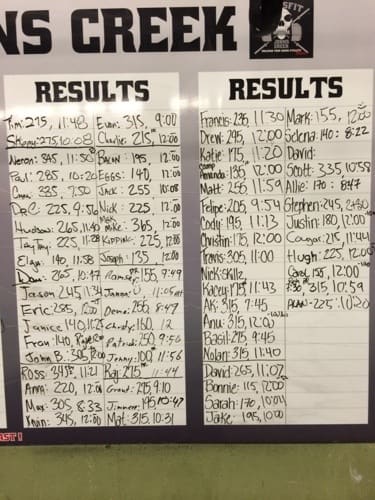 NS CREEK
RESULTS
Tim 275, 11:48
275 10:08
345, 11:50
Paul: 285, 10:20
335, 7:50
225, 9:56
Hudson: 265, 11:40
TayTay: 225, 11:28
140, 11:58
Dan: 265, 10:47
Jaxson 245, 11:34
Eric: 285,
Janice 140, 11:25
Fran: 140,
John B. 305, 12:00
Ross: 345, 11:21
Anna: 220, 12:00
Max: 305, 8:33
345, 12:00
Evan: 315, 9:00
Charlie: 215, 12:00
195, 12:00
EGGS: 140, 12:00
JACK: 255 10:08
Nick: 225, 12:00
Mike: 365, 12:00
KIPPING: 225, 12:00
Joseph: 135 12:00
155, 9:49
11:05
255, 8:47
Christy: 160, 12
Patrick: 250, 9:56
Jenny: 100, 11:56
Raj: 275 11:44
275, 9:10
195, 10:47
Mat: 315, 10:31
RESULTS
Francis: 235, 11:30
Drew: 295, 12:00
Katie: 175, 11:20
Amanda: 135, 12:00
Matt: 255, 11:59
Felipe: 205, 9:54
Cody: 195, 11:13
Christin: 175, 12:00
Travis: 305, 11:00
Nick: skillz
Kacey: 175, 11:43
AK: 315, 7:45
Anu: 315, 12:00
Basil: 275, 9:45
Nolan: 315, 11:40
David: 265, 11:07
Bonnie: 115, 12:00
Sarah: 170, 10:04
Jake: 195, 10:00
Mark: 155, 12:00
Selena: 140: 8:22
David:
Scott: 335, 10:58
Allie: 170: 8:47
Stephen: 245,
Justin: 180, 12:00
Cougar: 215, 11:44
Hugh: 225, 12:00
Carol: 155, 12:00
315, 10:59
ALAN: 225, 10:20